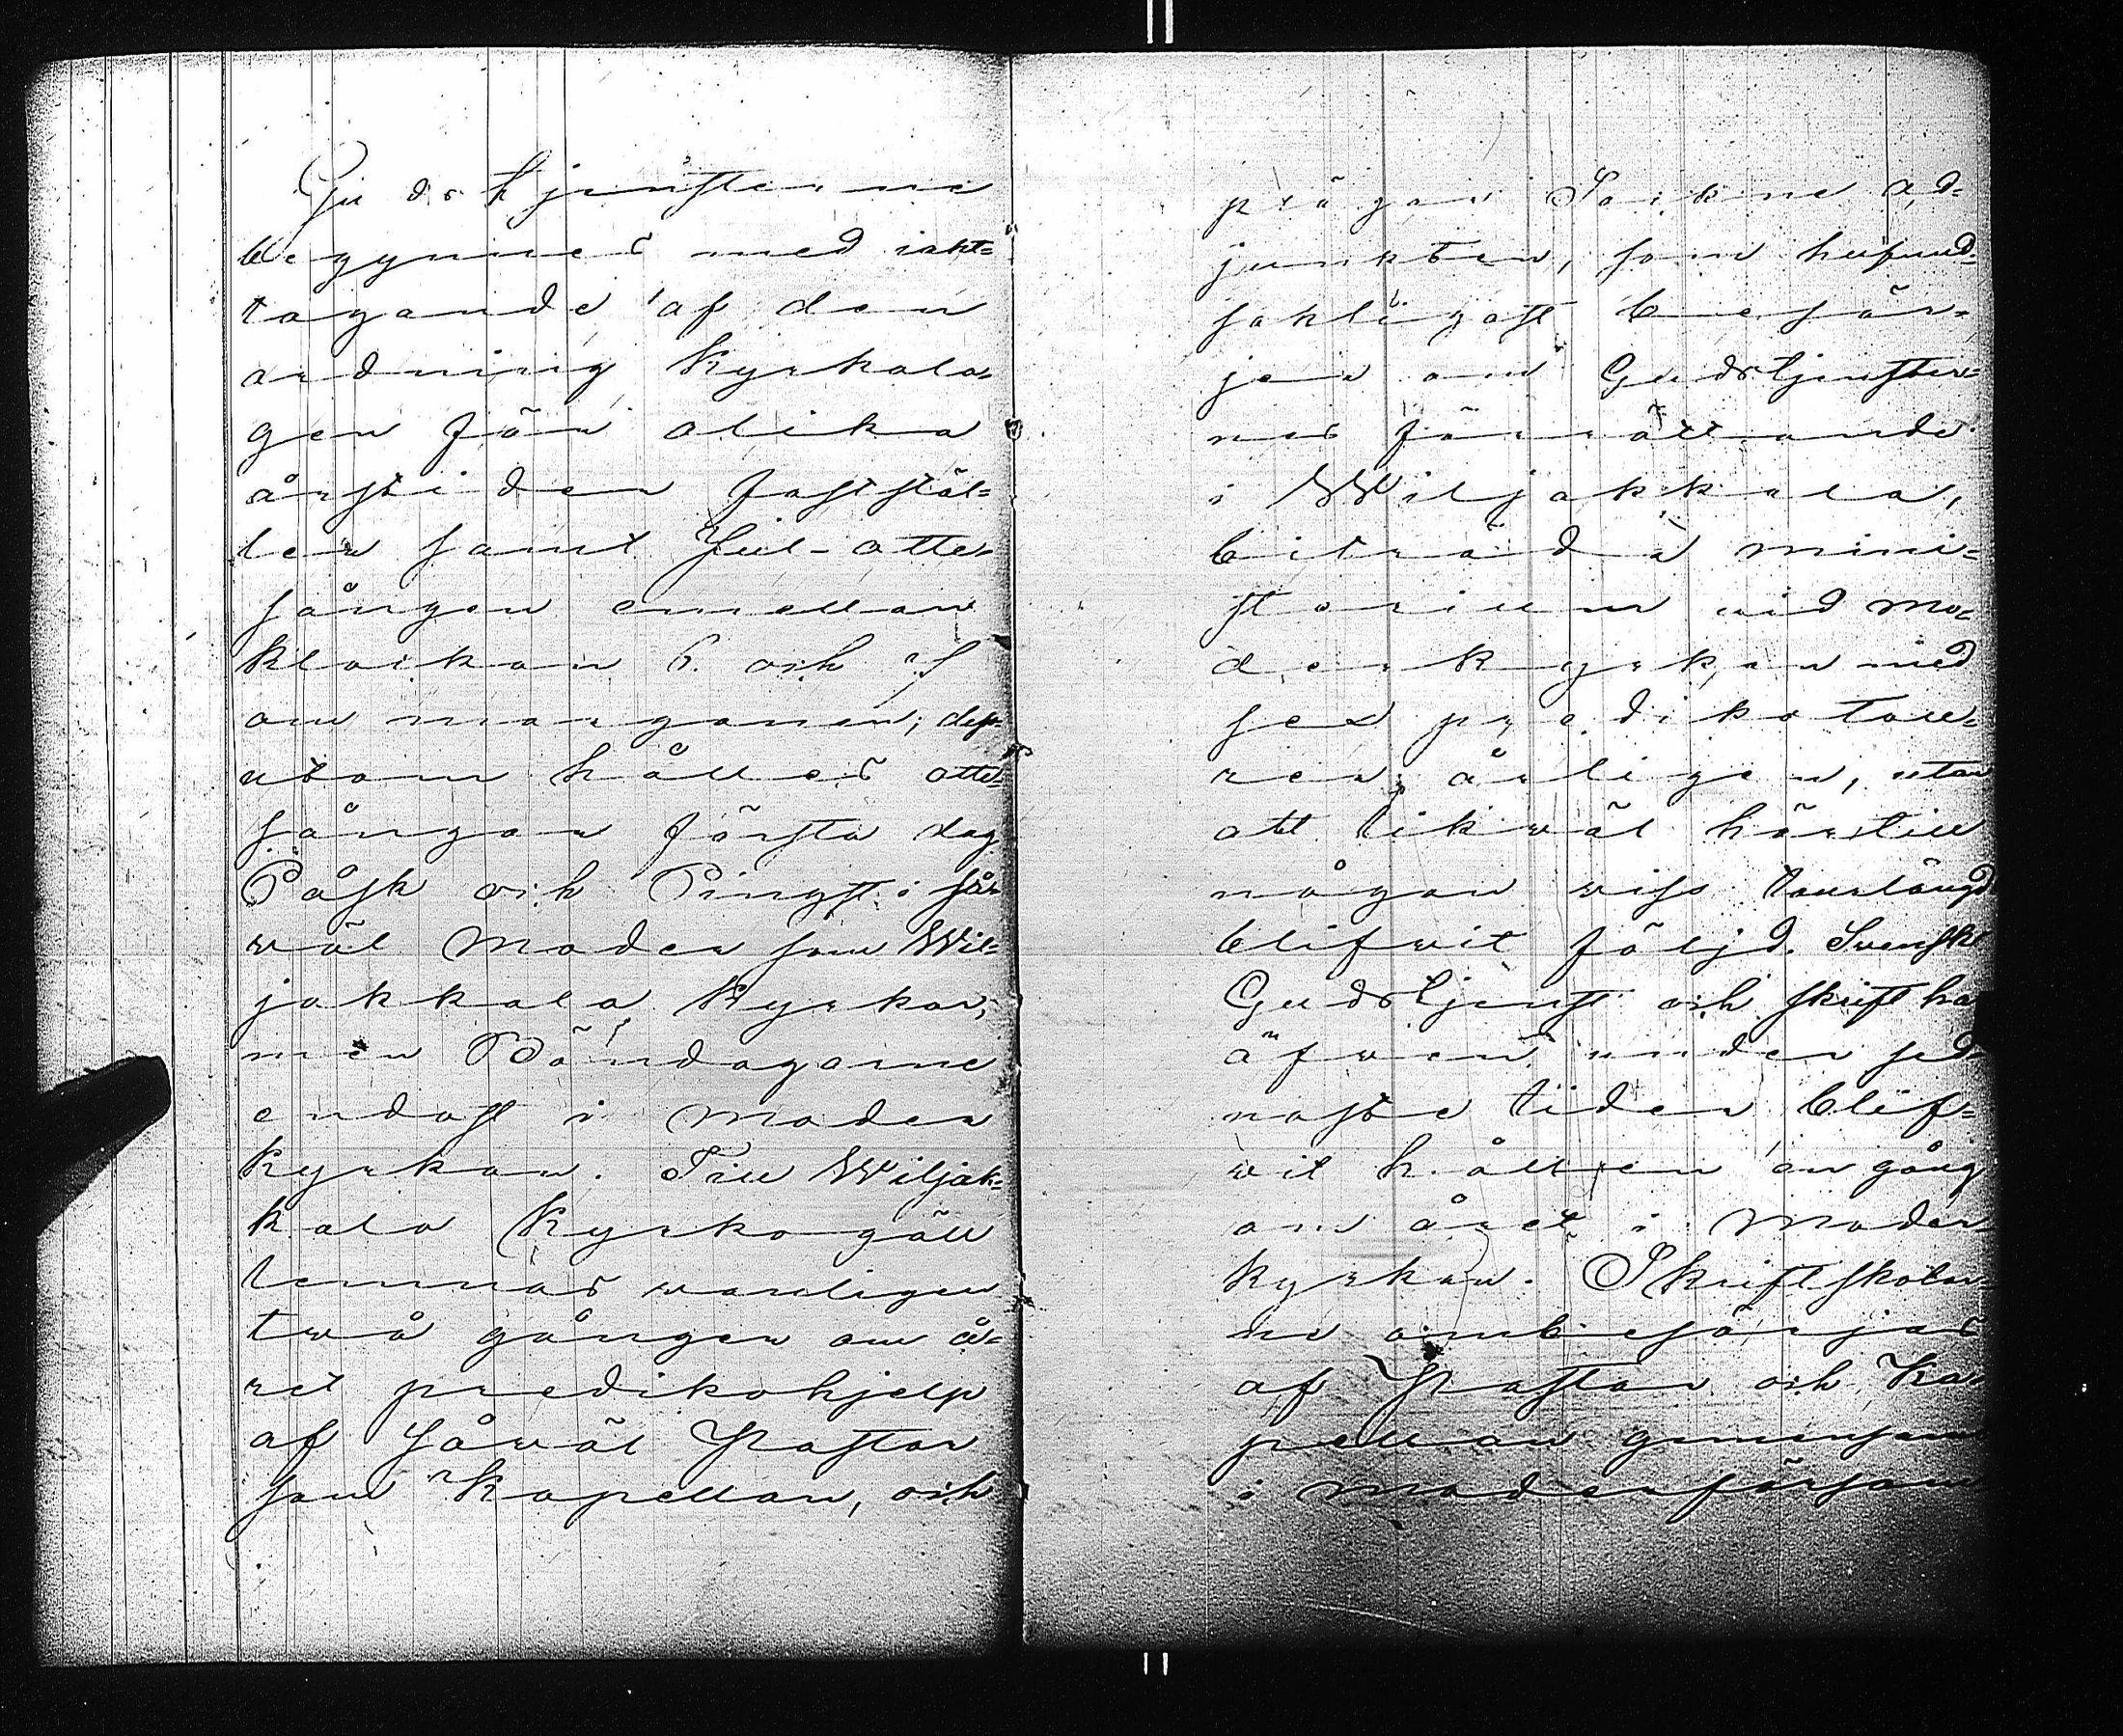 Gudstjensterne
begynnes med iakt=
tagande af den
ordning Kyrkola=
gen för olika
årstider faststäl=
ler samt Jul-otte=
sången emellan
klockan 6 och 7
om morgonen; dess=
utom hålles otte=
sången första dag
Påsk och Pingst i så=
wäl Moder som Wil=
jakkala Kyrkor,
men Böndagarne
endast i Moder
Kyrkan. Till Wiljak=
kala Kyrkogäll
lemnas wanligen
twå gånger om å=
ret predikohjelp
af såwäl Pastor
som Kapellan, och
plägar Sockne ad=
junkten, som hufwud=
sakligast besör=
jer om Gudstjenster=
nes förrättande
i Wiljakkala,
biträda mini=
sterium vid mo=
derkyrkan med
sex predikoture=
rer årligen, utan
att likwäl härtill
någon wiss tourlängd
blifwit följd. Svensk
Gudstjenst och skrift har
äfwen under sed=
naste tider blif=
wit hållen en gång
om året i Moder
kyrkan. Skriftskolor=
ne ombesörjas
af Pastor och Ka=
pellan gemensamt
i Moderförsam